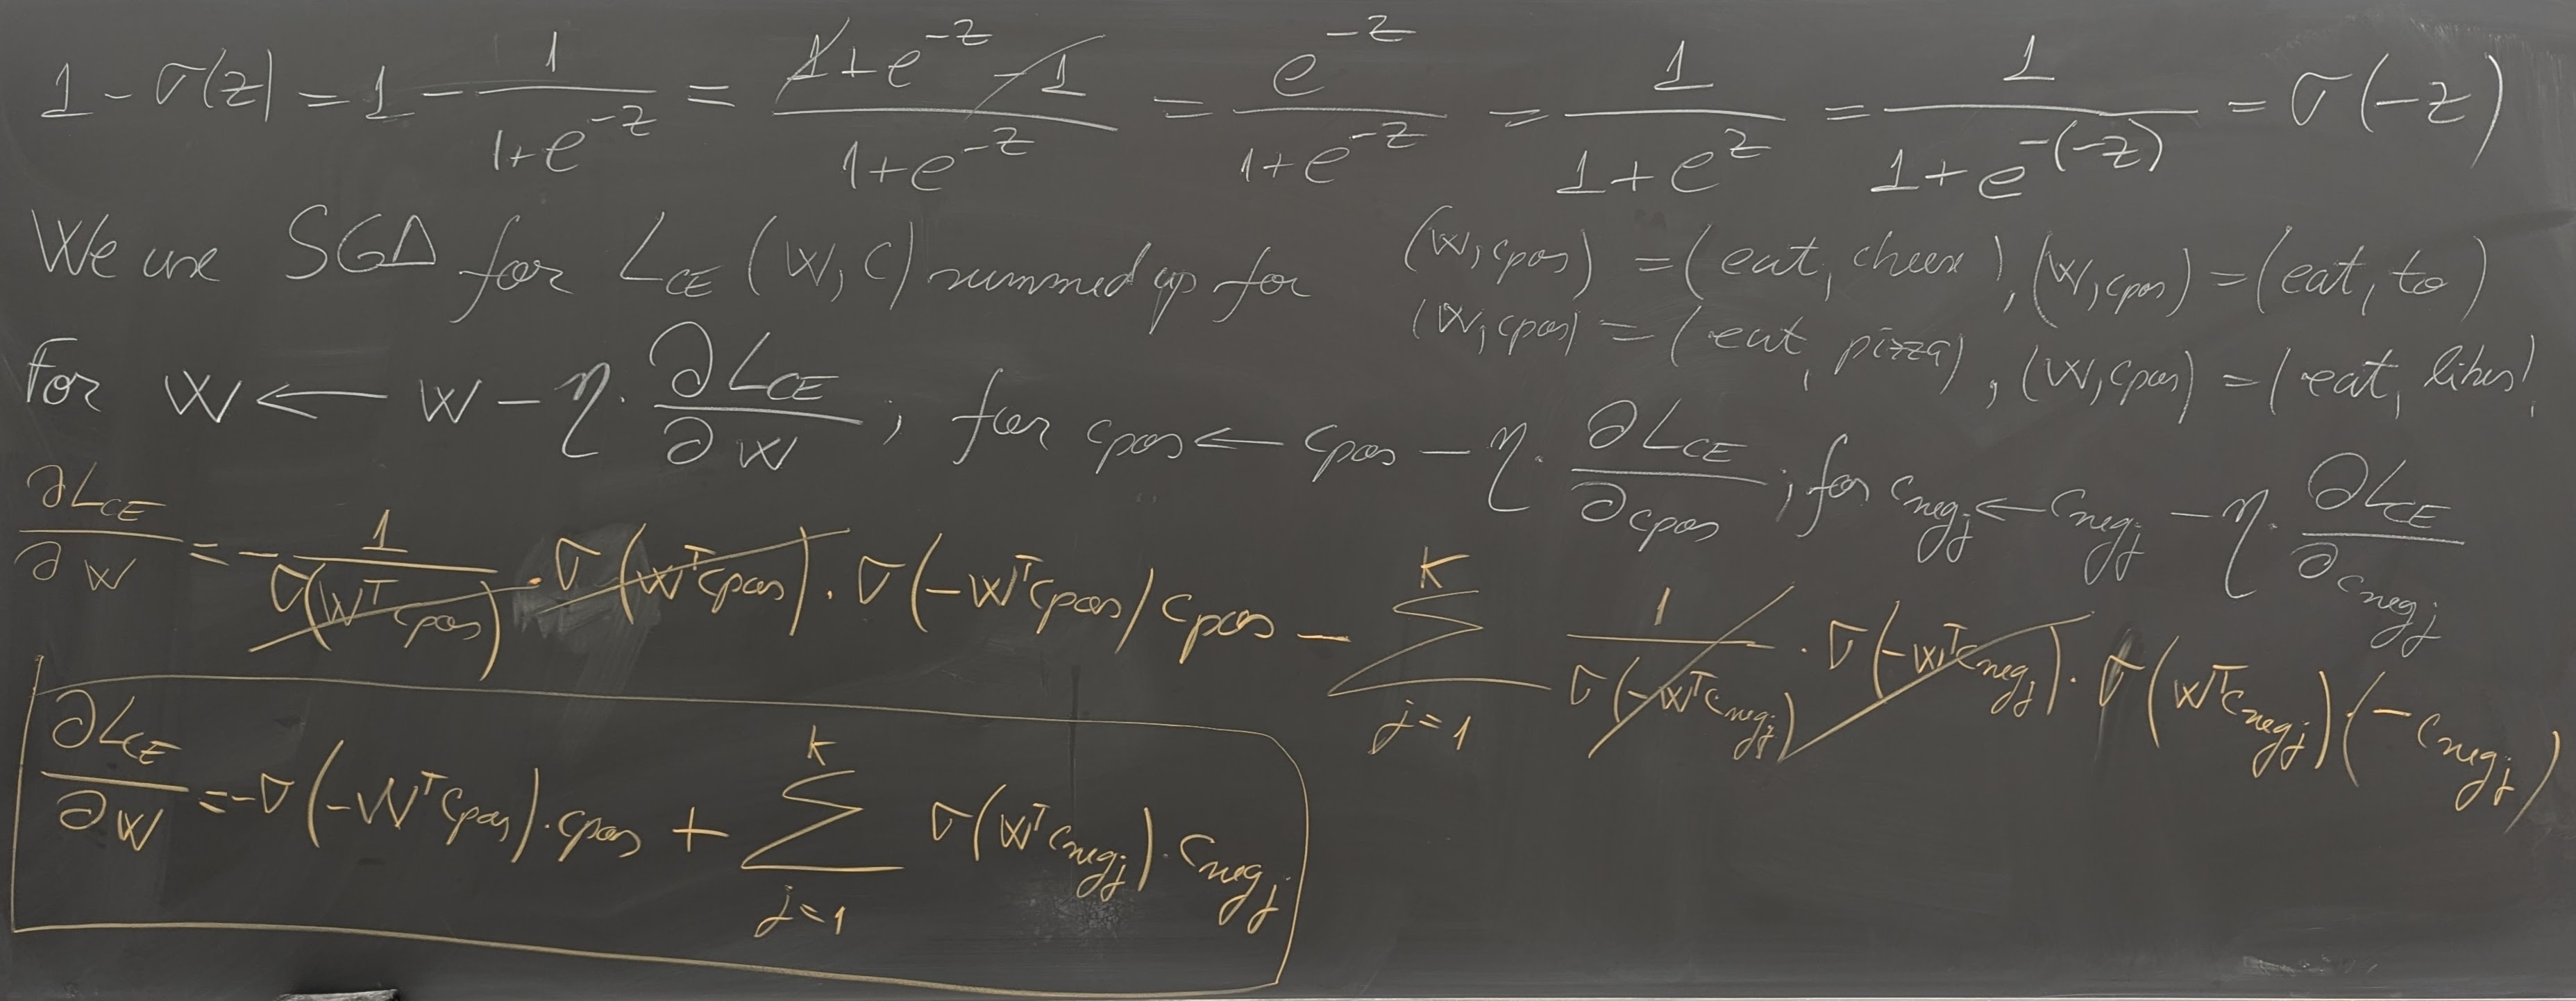 1 - σ(z) = 1 - 1/(1+e^{-z}) = (1+e^{-z} - 1)/(1+e^{-z}) = e^{-z}/(1+e^{-z}) = 1/(1+e^{z}) = 1/(1+e^{-(-z)}) = σ(-z)
We use SGD for L_{CE} (w, c) summed up for (w, cpos) = (eat, cheese), (w, cpos) = (eat, to)
(w, cpos) = (eat, pizza), (w, cpos) = (eat, likes)
For w ← w - η · ∂L_{CE}/∂w ; for cpos ← cpos - η · ∂L_{CE}/∂cpos ; for c_{neg_j} ← c_{neg_j} - η · ∂L_{CE}/∂c_{neg_j}
∂L_{CE}/∂w = - 1/σ(w^T cpos) · σ(w^T cpos) · σ(-w^T cpos) cpos - Σ_{j=1}^{K} 1/σ(-w^T c_{neg_j}) · σ(-w^T c_{neg_j}) · σ(w^T c_{neg_j}) (-c_{neg_j})
∂L_{CE}/∂w = -σ(-w^T cpos) · cpos + Σ_{j=1}^{K} σ(w^T c_{neg_j}) · c_{neg_j}